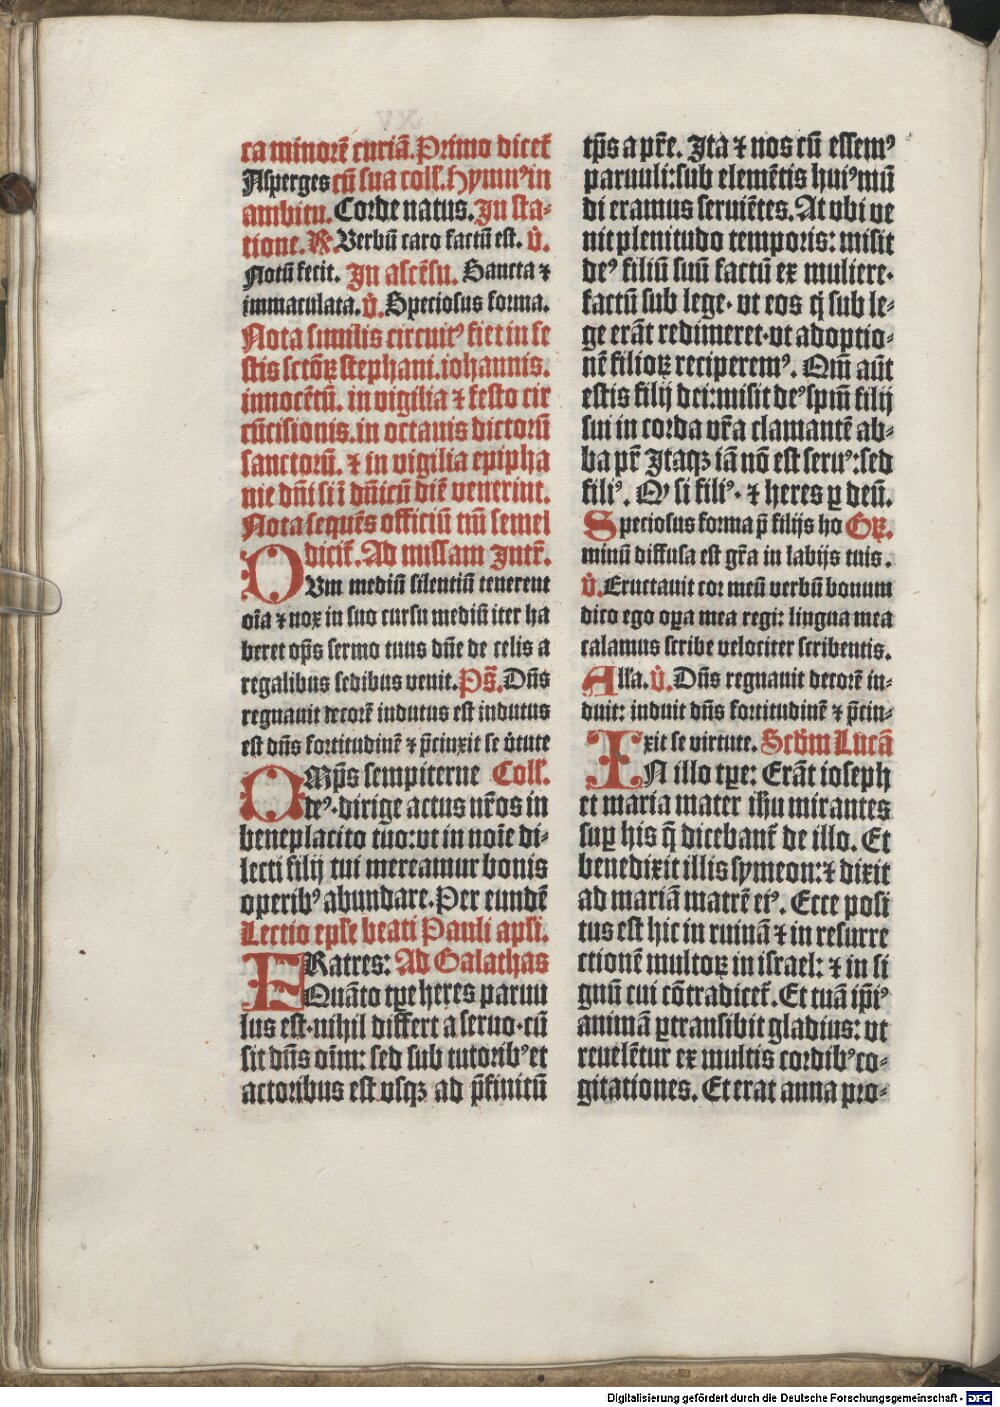 ca minorē curiā. Primo dicet̄
Asperges cū sua coll̄. Hymnꝰ in
ambitu. Corde natus. In sta⸗
tione. ℟. Verbū caro factū est. v̄.
Notū fecit. In ascēsu. Sancta ⁊
immaculata. v̄. Speciosus forma.
Nota similis circuitꝰ fiet in fe
stis sctōꝝ stephani. iohannis.
innocētū. in vigilia ⁊ festo cir
cūcisionis. in octauis dictorū
sanctorū. ⁊ in vigilia epipha
nie dn̄i si ī dn̄icū diē venerint.
Nota sequēs officiū tm̄ semel
dicit̄. Ad missam Intr̄.
OVm mediū silentiū tenerent
oīa ⁊ nox in suo cursu mediū iter ha
beret op̄s sermo tuus dn̄e de celis a
regalibus sedibus venit. Ps̄. Dn̄s
regnauit decorē indutus est indutus
est dn̄s fortitudinē ⁊ p̄cinxit se v̄tute
OMp̄s sempiterne Coll̄.
deꝰ. dirige actus nr̄os in
beneplacito tuo: vt in noīe di⸗
lecti filij tui mereamur bonis
operibꝰ abundare. Per eundē
Lectio ep̄le beati Pauli apl̄i.
FRatres: Ad Galathas
Quāto tꝑe heres paruu
lus est. nihil differt a seruo. cū
sit dn̄s oīm: sed sub tutoribꝰ et
actoribus est vsqꝫ ad p̄finitū
tp̄s a pr̄e. Ita ⁊ nos cū essemꝰ
paruuli: sub elemētis huiꝰ mū
di eramus seruiētes. At vbi ve
nit plenitudo temporis: misit
deꝰ filiū suū factū ex muliere.
factū sub lege. vt eos q̄ sub le⸗
ge erāt redimeret. vt adoptio⸗
nē filioꝝ reciperemꝰ. Qm̄ aūt
estis filij dei: misit deꝰ spm̄ filij
sui in corda vr̄a clamantē ab⸗
ba pr̄ Itaqꝫ iā nō est seruꝰ: sed
filiꝰ. Qꝫ si filiꝰ. ⁊ heres ꝑ deū.
Speciosus forma p̄ filijs ho Gꝝ.
minū diffusa est gr̄a in labijs tuis.
v̄. Eructauit cor meū verbū bonum
dico ego oꝑa mea regi: lingua mea
calamus scribe velociter scribentis.
Alla. v̄. Dn̄s regnauit decorē in⸗
duit: induit dn̄s fortitudinē ⁊ p̄cin⸗
xit se virtute. Scd̄m Lucā
IN illo tꝑe: Erāt ioseph
et maria mater ih̄u mirantes
suꝑ his q̄ dicebant̄ de illo. Et
benedixit illis symeon: ⁊ dixit
ad mariā matrē eiꝰ. Ecce posi
tus est hic in ruinā ⁊ in resurre
ctionē multoꝝ in israel: ⁊ in si
gnū cui cōtradicet̄. Et tuā ip̄iꝰ
animā ꝑtransibit gladius: vt
reuelētur ex multis cordibꝰ co⸗
gitationes. Et erat anna pro⸗
Digitalisierung gefördert durch die Deutsche Forschungsgemeinschaft - DFG